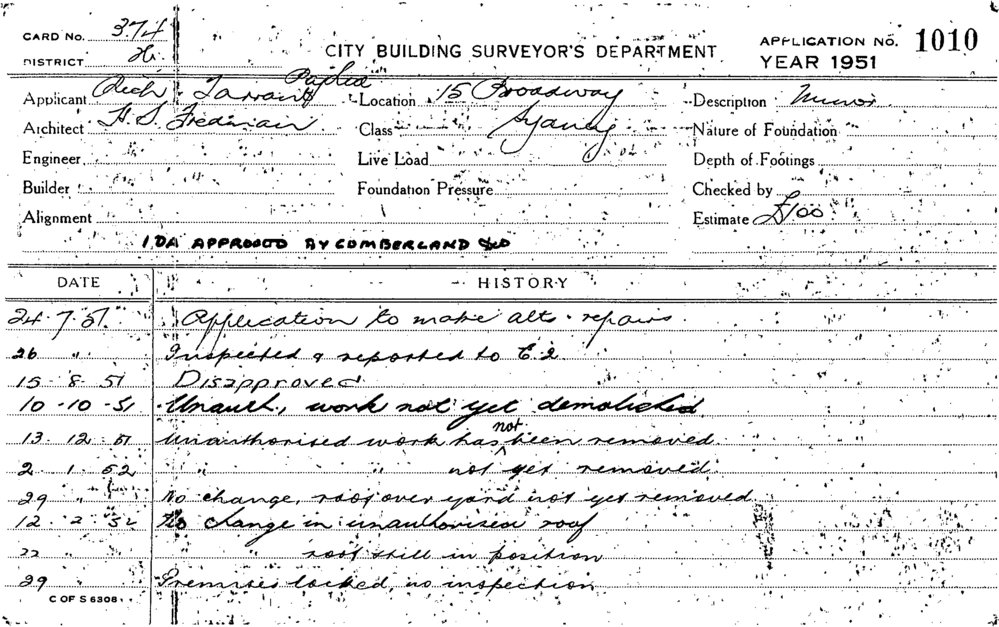 CARD No. 374
DISTRICT
CITY BUILDING SURVEYOR'S DEPARTMENT
APPLICATION No. 1010
YEAR 1951
Applicant Rich Tarrant
Location 15 Broadway
Description Minor
Architect H. S. Fredman
Class Sydney
Nature of Foundation
Engineer
Live Load
Depth of Footings
Builder
Foundation Pressure
Checked by
Alignment
Estimate £100
APPROVED BY CUMBERLAND
DATE HISTORY
24.7.51 Application to make alts. repairs
26 " Inspected & reported to C.2.
15 8 51 Disapproved
10-10-51 Unauth. work not yet demolished
13 12 51 Unauthorised work has not been removed
2 1 52 " " not yet removed
29 " No change, roof over yard not yet removed
12 2 52 No change in unauthorised roof
22 " " roof still in position
29 Premises locked, no inspection
C OF S 6308